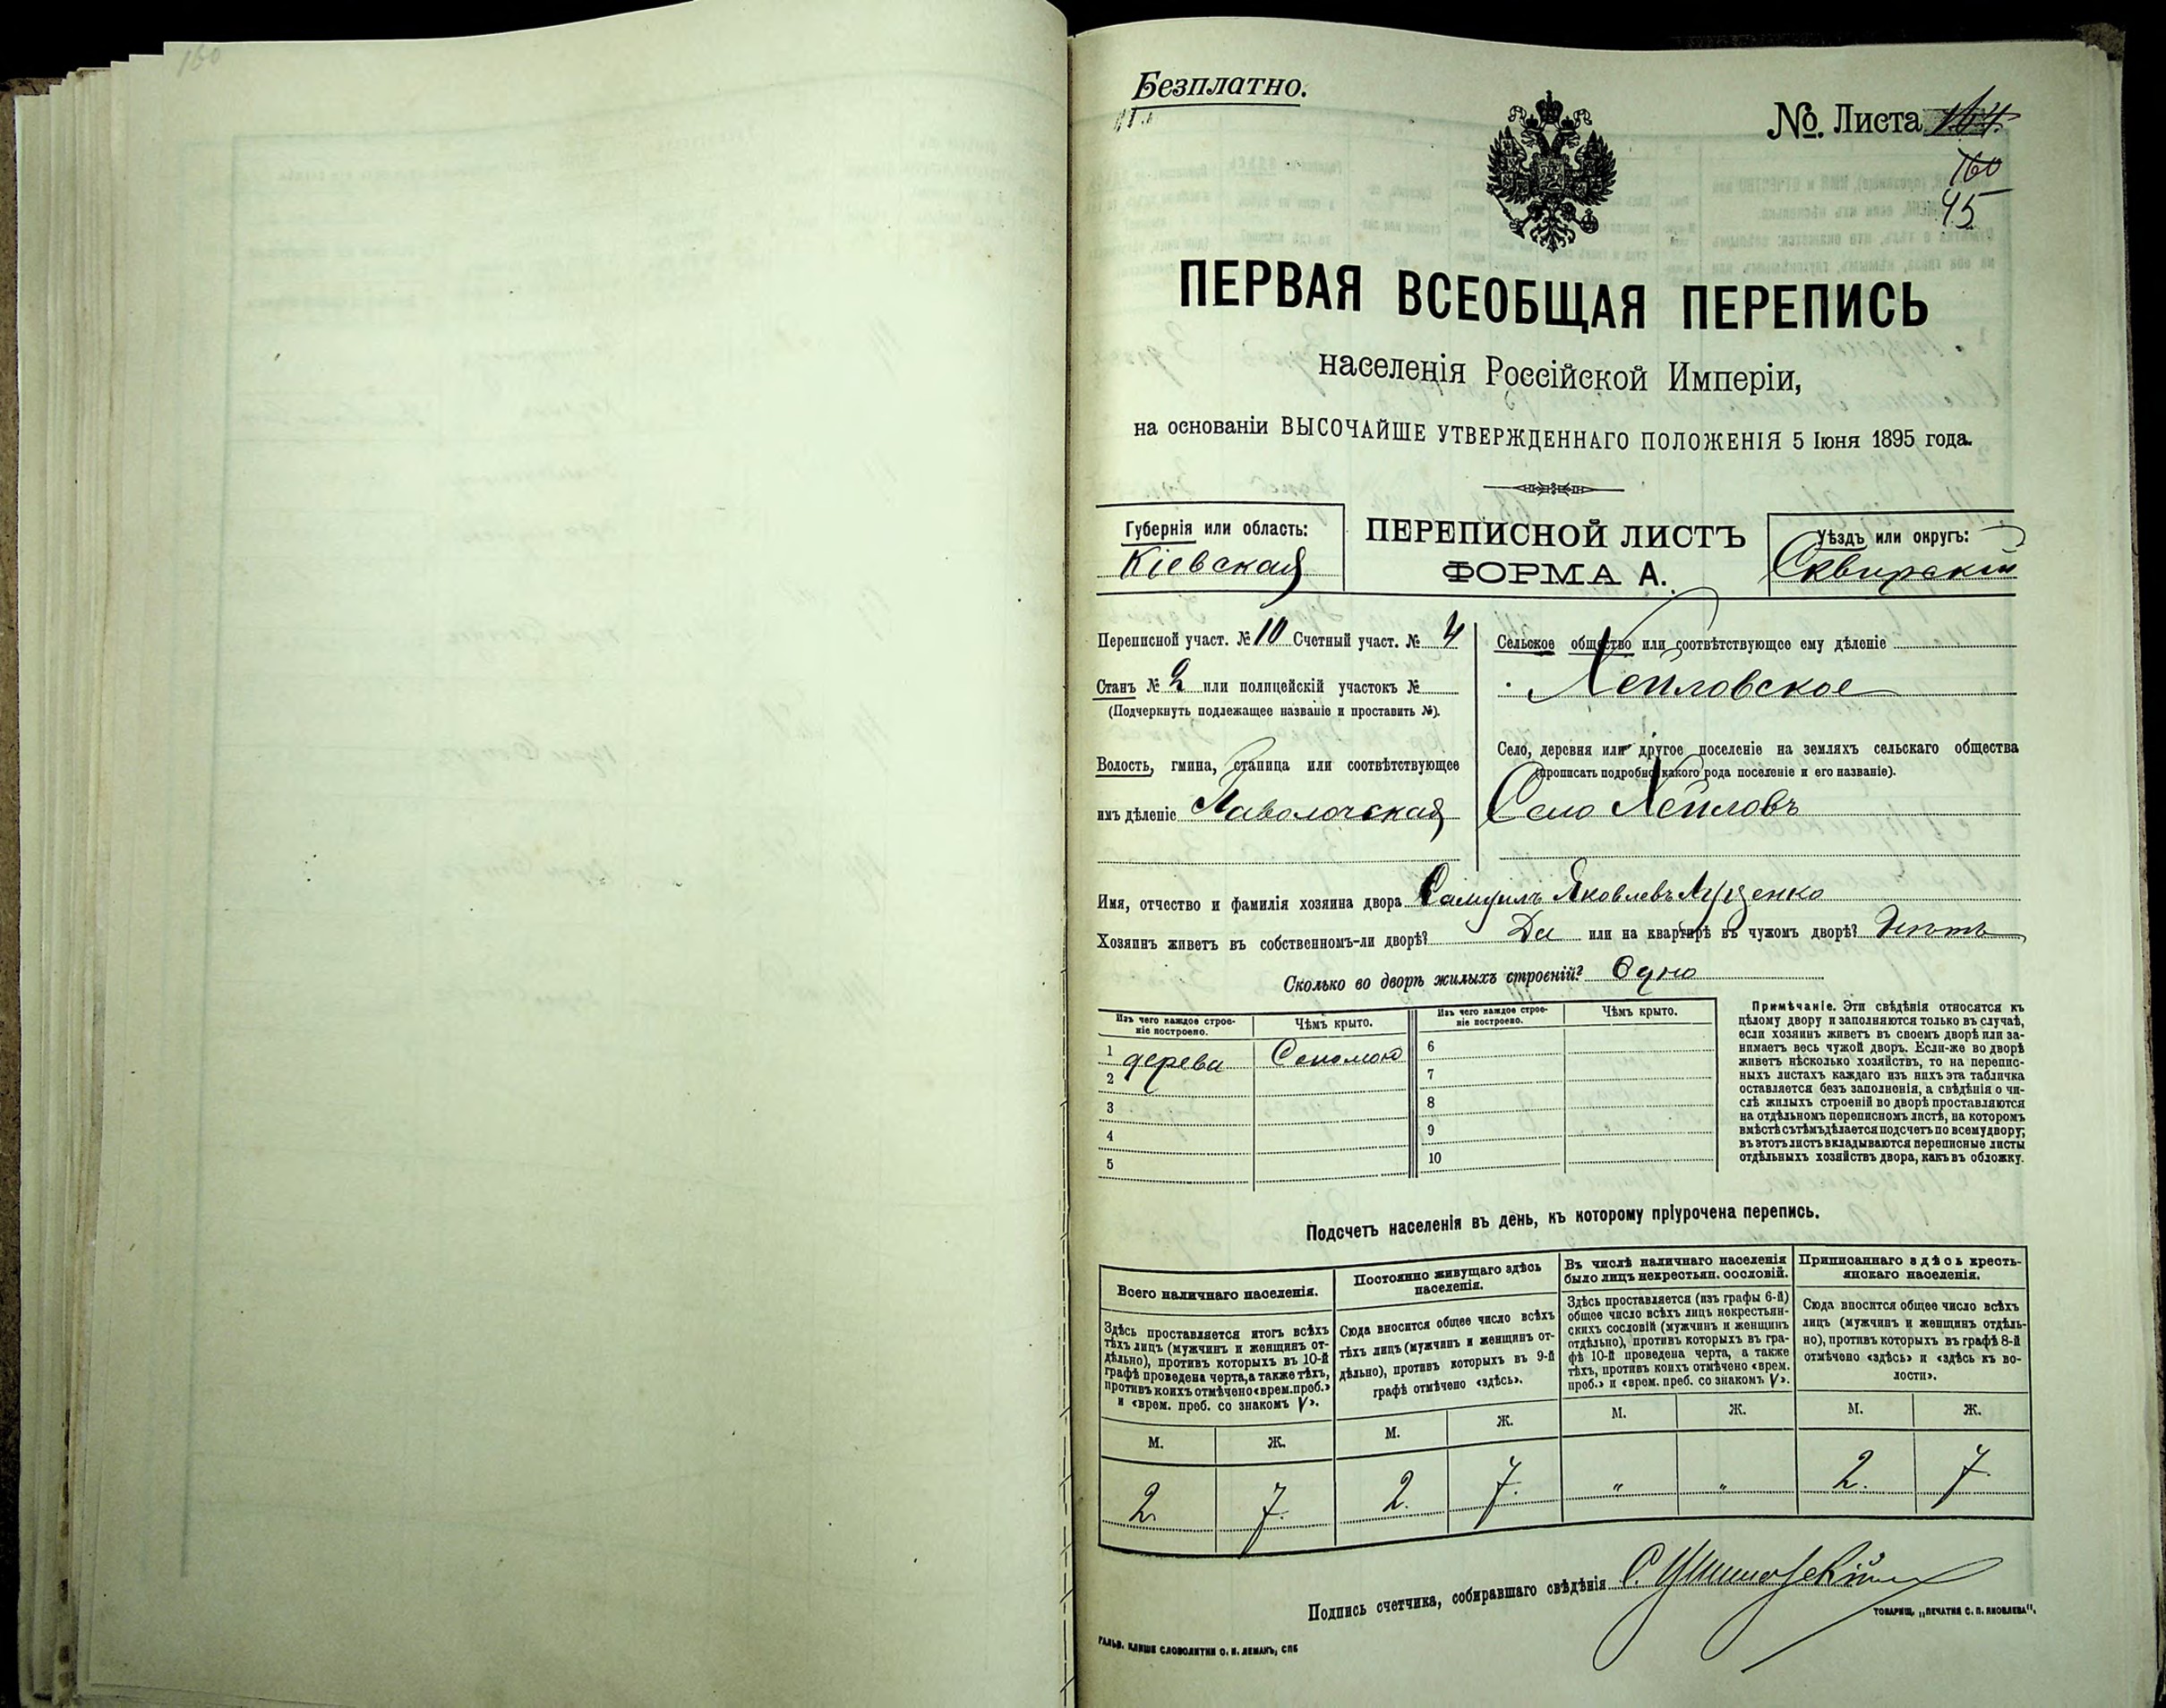 160
Безплатно.
№. Листа 164.
160
45.
ПЕРВАЯ ВСЕОБЩАЯ ПЕРЕПИСЬ
населенія Россійской Имперіи,
на основаніи ВЫСОЧАЙШЕ УТВЕРЖДЕННАГО ПОЛОЖЕНІЯ 5 Іюня 1895 года.
Губернія или область:
Кіевская
ПЕРЕПИСНОЙ ЛИСТЪ
ФОРМА А.
Уѣздъ или округъ:
Сквирскій
Переписной участ. № 10 Счетный участ. № 4
Станъ № 2 или полицейскій участокъ №
(Подчеркнуть подлежащее названіе и проставить №).
Волость, гмина, станица или соотвѣтствующее
имъ дѣленіе Паволочская
Сельское общество или соотвѣтствующее ему дѣленіе
Хейловское
Село, деревня или другое поселеніе на земляхъ сельскаго общества
(прописать подробно какого рода поселеніе и его названіе).
Село Хейловъ
Имя, отчество и фамилія хозяина двора Самуилъ Яковлевъ Луценко
Хозяинъ живетъ въ собственномъ-ли дворѣ? Да или на квартирѣ въ чужомъ дворѣ? Нѣтъ
Сколько во дворѣ жилыхъ строеній? Одно
Изъ чего каждое строе-
ніе построено.
Чѣмъ крыто.
Изъ чего каждое строе-
ніе построено.
Чѣмъ крыто.
1 дерева Соломою
2
3
4
5
6
7
8
9
10
Примѣчаніе. Эти свѣдѣнія относятся къ
цѣлому двору и заполняются только въ случаѣ,
если хозяинъ живетъ въ своемъ дворѣ или за-
нимаетъ весь чужой дворъ. Если-же во дворѣ
живетъ нѣсколько хозяйствъ, то на перепис-
ныхъ листахъ каждаго изъ нихъ эта табличка
оставляется безъ заполненія, а свѣдѣнія о чи-
слѣ жилыхъ строеній во дворѣ проставляются
на отдѣльномъ переписномъ листѣ, на которомъ
вмѣстѣ съ тѣмъ дѣлается подсчетъ по всему двору;
въ этотъ листъ вкладываются переписные листы
отдѣльныхъ хозяйствъ двора, какъ въ обложку.
Подсчетъ населенія въ день, къ которому пріурочена перепись.
Всего наличнаго населенія.
Здѣсь проставляется итогъ всѣхъ
тѣхъ лицъ (мужчинъ и женщинъ от-
дѣльно), противъ которыхъ въ 10-й
графѣ проведена черта, а также тѣхъ,
противъ коихъ отмѣчено «врем. преб.»
и «врем. преб. со знакомъ V».
М. Ж.
2. 7.
Постоянно живущаго здѣсь
населенія.
Сюда вносится общее число всѣхъ
тѣхъ лицъ (мужчинъ и женщинъ от-
дѣльно), противъ которыхъ въ 9-й
графѣ отмѣчено «здѣсь».
М. Ж.
2. 7.
Въ числѣ наличнаго населенія
было лицъ некрестьян. сословій.
Здѣсь проставляется (изъ графы 6-й)
общее число всѣхъ лицъ некрестьян-
скихъ сословій (мужчинъ и женщинъ
отдѣльно), противъ которыхъ въ гра-
фѣ 10-й проведена черта, а также
тѣхъ, противъ коихъ отмѣчено «врем.
преб.» и «врем. преб. со знакомъ V».
М. Ж.
" "
Приписаннаго здѣсь кресть-
янскаго населенія.
Сюда вносится общее число всѣхъ
лицъ (мужчинъ и женщинъ отдѣль-
но), противъ которыхъ въ графѣ 8-й
отмѣчено «здѣсь» и «здѣсь къ во-
лости».
М. Ж.
2. 7.
Подпись счетчика, собиравшаго свѣдѣнія С.
ГАЛЬВ. КЛИШЕ СЛОВОЛИТНИ О. И. ЛЕМАНЪ, СПБ
ТОВАРИЩ. „ПЕЧАТНЯ С. П. ЯКОВЛЕВА“.